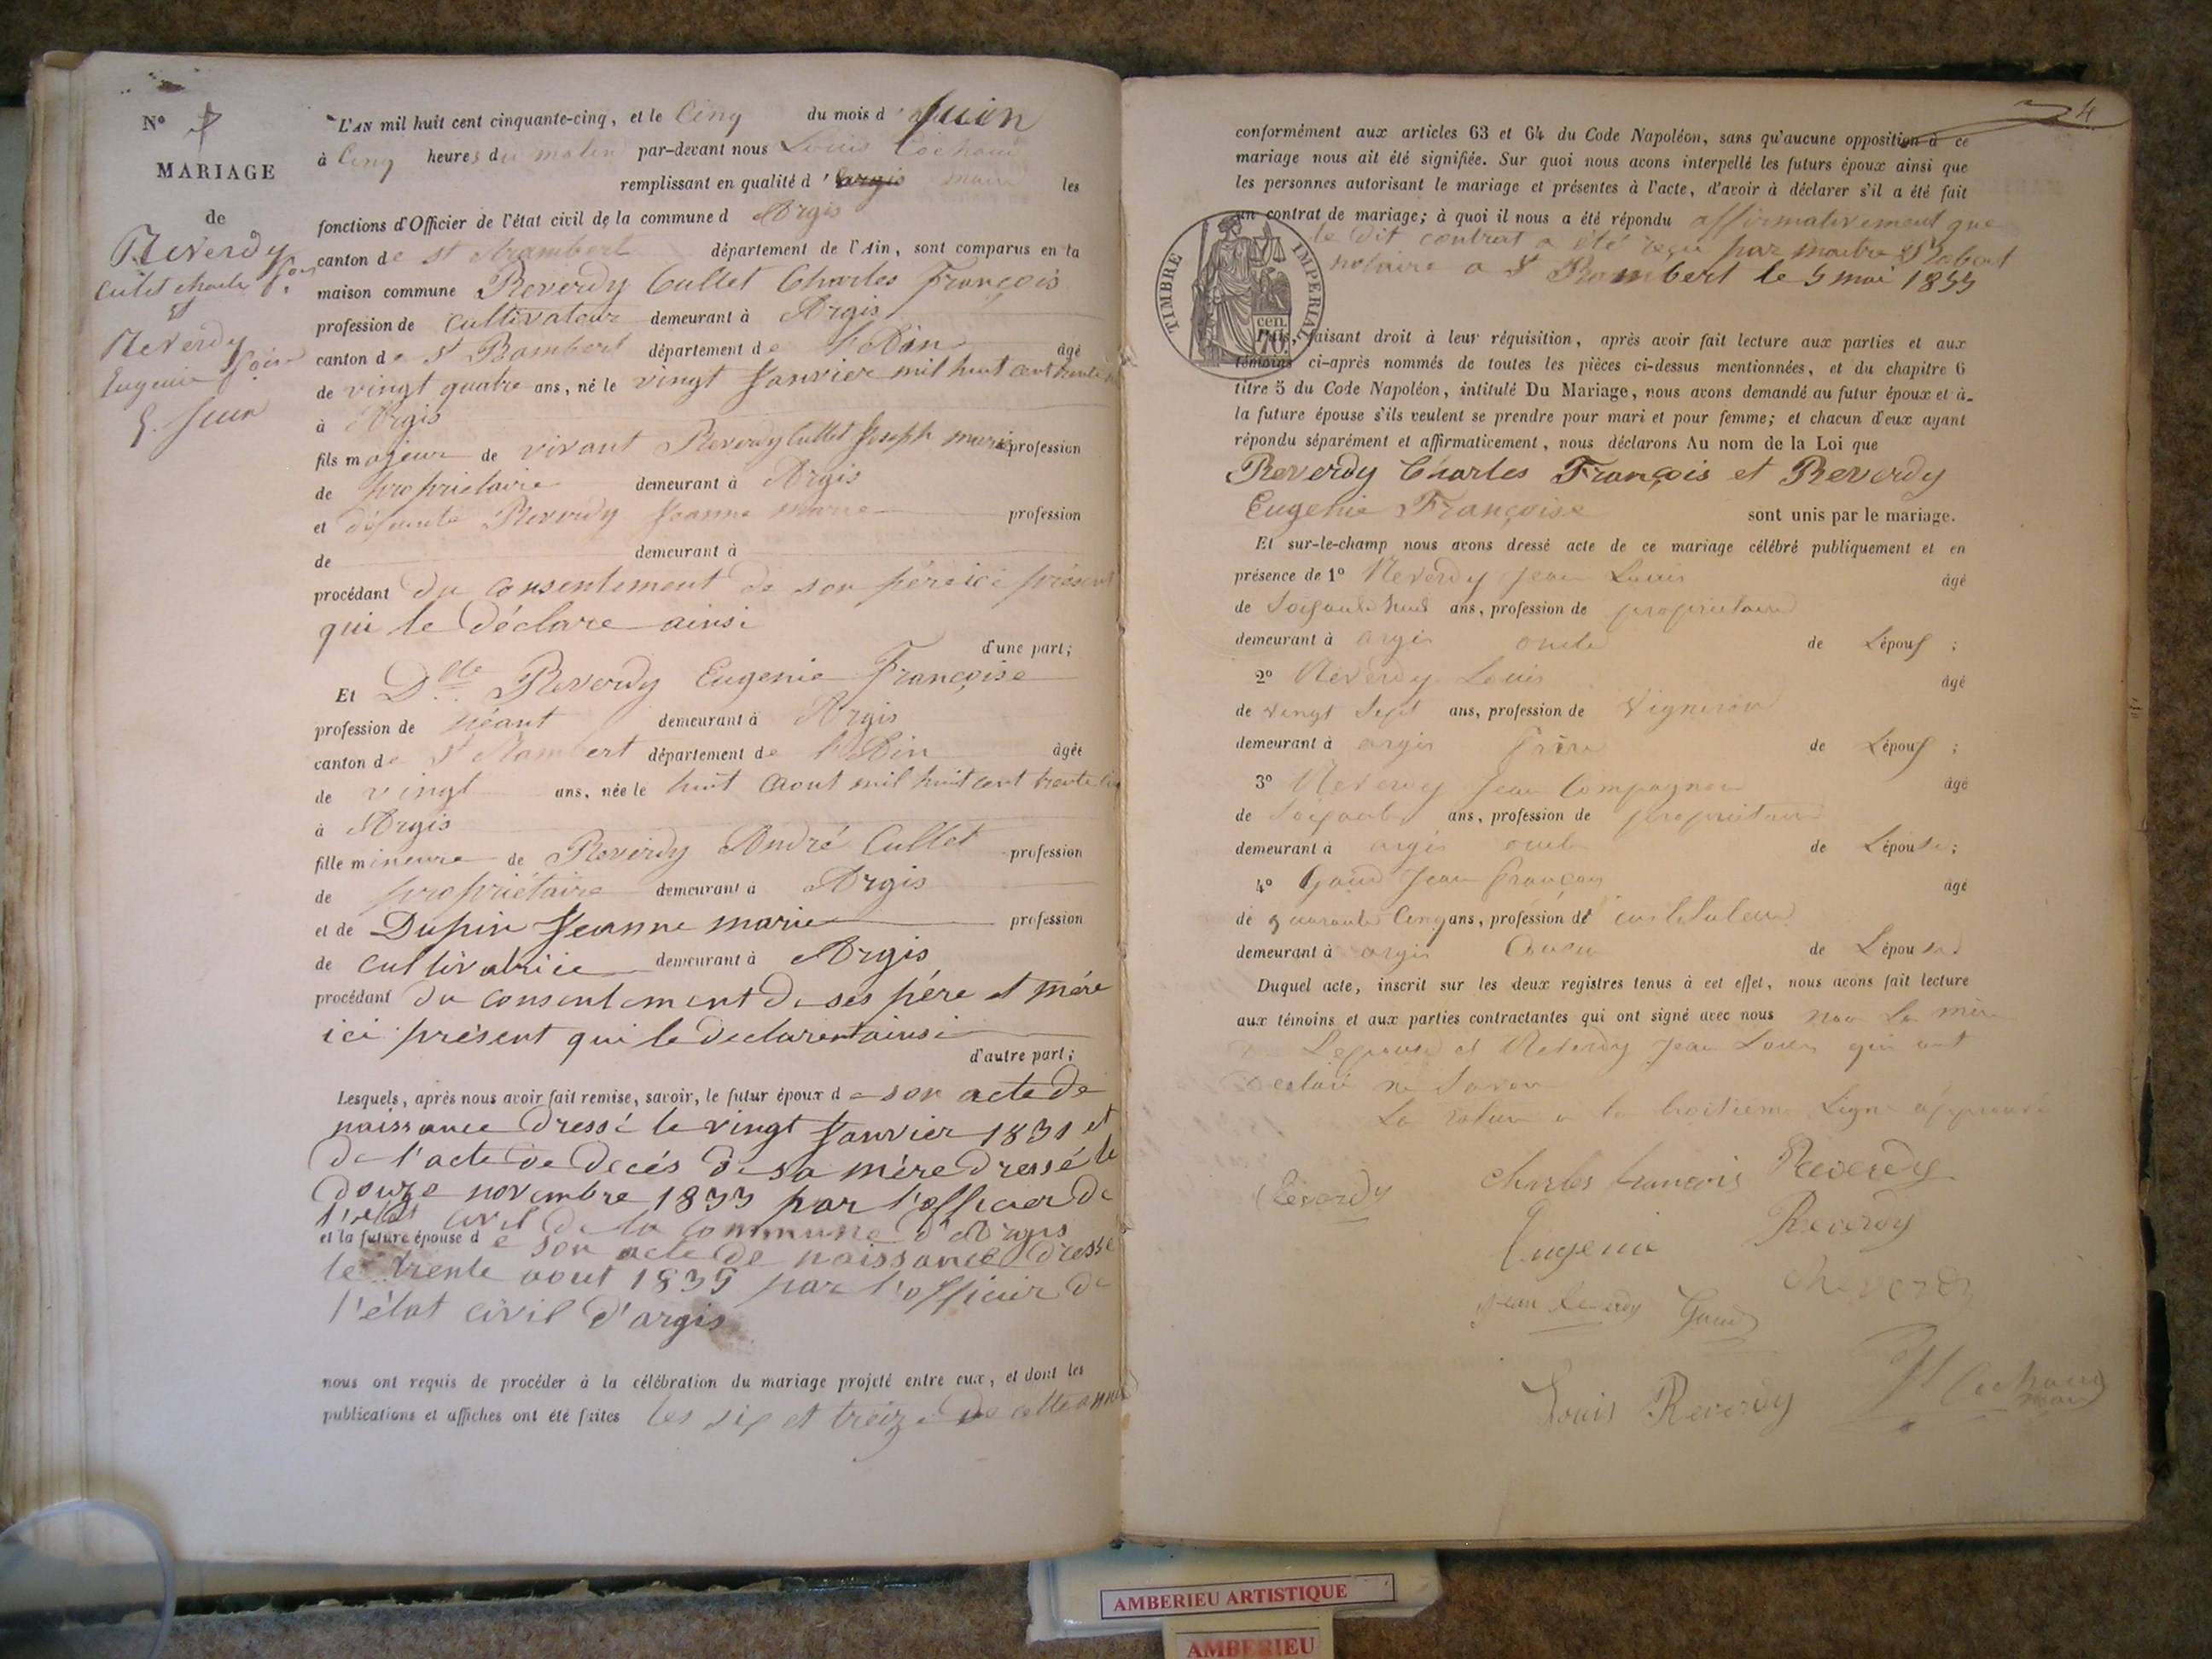 N° 7
MARIAGE
de
Reverdy
Cullet Charles f.ois
et
Reverdy
Eugenie f.oise
5. Juin
L'AN mil huit cent cinquante-cinq, et le Cinq du mois d Juin
à Cinq heures du matin par-devant nous Louis Cochand
remplissant en qualité d' maire les
fonctions d'Officier de l'état civil de la commune d Argis
canton de st Rambert département de l'Ain, sont comparus en la
maison commune Reverdy Cullet Charles François
profession de cultivateur demeurant à Argis
canton de St Rambert département de l'Ain âgé
de vingt quatre ans, né le vingt Janvier mil huit cent trente
à Argis
fils majeur de vivant Reverdy Cullet Joseph marie profession
de propriétaire demeurant à Argis
et défunte Reverdy Jeanne marie profession
de demeurant à
procédant du consentement de son père ici présent
qui le déclare ainsi
d'une part;
Et Dlle Reverdy Eugenie Françoise
profession de néant demeurant à Argis
canton de St Rambert département de l'Ain âgée
de vingt ans, née le huit Aout mil huit cent trente
à Argis
fille mineure de Reverdy André Cullet profession
de propriétaire demeurant à Argis
et de Dupin Jeanne marie profession
de cultivatrice demeurant à Argis
procédant du consentement de ses père et mère
ici présent qui le declarent ainsi
d'autre part;
Lesquels, après nous avoir fait remise, savoir, le futur époux de son acte de
naissance dressé le vingt Janvier 1831 et
de l'acte de decés de sa mère dressé le
douze novembre 1833 par l'officier de
l'état civil de la commune d'Argis
et la future épouse de son acte de naissance dressé
le trente aout 1835 par l'officier de
l'état civil d'argis
nous ont requis de procéder à la célébration du mariage projeté entre eux, et dont les
publications et affiches ont été faites les six et treize de cette année
4
conformément aux articles 63 et 64 du Code Napoléon, sans qu'aucune opposition à ce
mariage nous ait été signifiée. Sur quoi nous avons interpellé les futurs époux ainsi que
les personnes autorisant le mariage et présentes à l'acte, d'avoir à déclarer s'il a été fait
un contrat de mariage; à quoi il nous a été répondu affirmativement que
le dit contrat a été reçu par maitre
notaire a St Rambert le 5 mai 1855
TIMBRE IMPERIAL
70 cen.
Puis, faisant droit à leur réquisition, après avoir fait lecture aux parties et aux
témoins ci-après nommés de toutes les pièces ci-dessus mentionnées, et du chapitre 6
titre 5 du Code Napoléon, intitulé Du Mariage, nous avons demandé au futur époux et à
la future épouse s'ils veulent se prendre pour mari et pour femme; et chacun d'eux ayant
répondu séparément et affirmativement, nous déclarons Au nom de la Loi que
Reverdy Charles François et Reverdy
Eugenie Françoise sont unis par le mariage.
Et sur-le-champ nous avons dressé acte de ce mariage célébré publiquement et en
présence de 1° Reverdy Jean Louis âgé
de Soixante huit ans, profession de propriétaire
demeurant à argis oncle de L'époux;
2° Reverdy Louis âgé
de vingt Sept ans, profession de Vigneron
demeurant à argis frère de L'époux;
3° Reverdy Jean Compagnon âgé
de Soixante ans, profession de propriétaire
demeurant à argis oncle de L'épouse;
4° Gaud Jean françois âgé
de quarante Cinq ans, profession de cultivateur
demeurant à argis Cousin de L'épouse
Duquel acte, inscrit sur les deux registres tenus à cet effet, nous avons fait lecture
aux témoins et aux parties contractantes qui ont signé avec nous non La mère
de L'epouse et Reverdy Jean Louis qui ont
Declaré ne Savoir
La rature a la troisieme Ligne approuvé
Reverdy Charles françois Reverdy
Eugenie Reverdy
Jean Reverdy Gaud Reverdy
Louis Reverdy Cochand
maire
AMBERIEU ARTISTIQUE
AMBERIEU